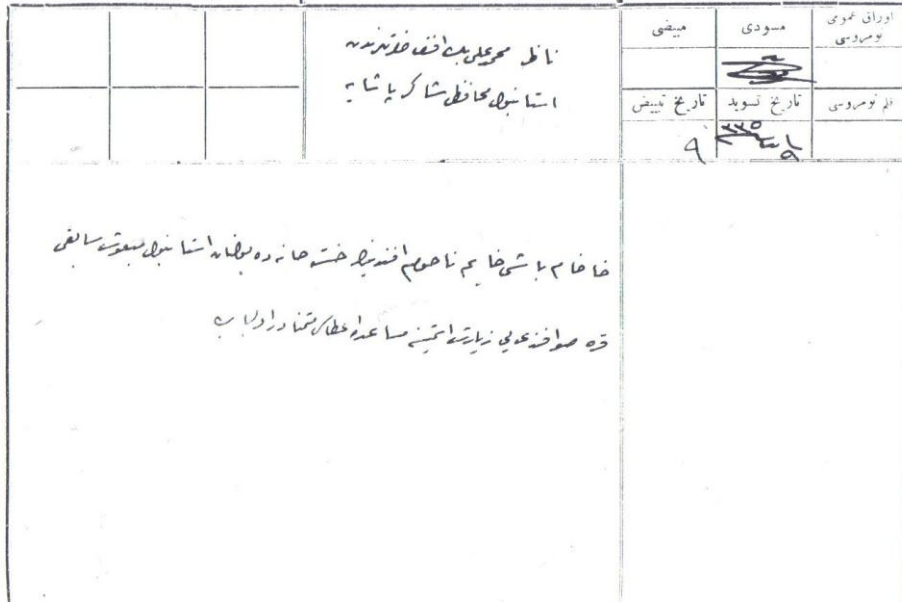 اوراق عمومی نومروسی
مسودی
مبیضی
قلم نومروسی
تاریخ تسوید
تاریخ تبییض
٩
٣٣٥
٩
ناظر محمد علی بك افندی حضرتلرندن
استانبول محافظی شاكر پاشایه
خاخام باشی خایم ناحوم افندینك خسته خانه ده بولنان استانبول مبعوث سابقی
قره صو افندی یی زیارت ایتمسنه مساعده اعطاسی متمنادر اولبابده